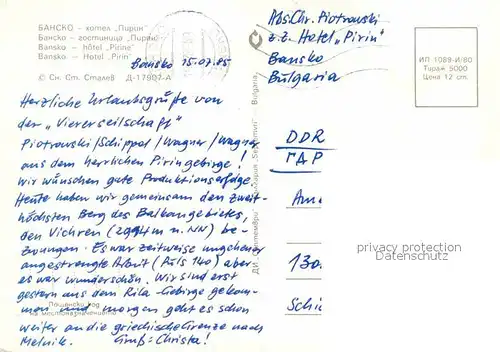 БАНСКО — хотел „Пирин"
Банско — гостиница „Пирин"
Bansko — hôtel „Pirine"
Bansko — Hotel „Pirin"
© Сн. Ст. Сталев Д-17907-А
Bansko, 15.07.85
Herzliche Urlaubsgrüße von
der „Viererseilschaft"
Piotrowski/Schippal/Wagner/Wagner
aus dem herrlichen Piringebirge!
Wir wünschen gute Produktionserfolge.
Heute haben wir gemeinsam den zweit-
höchsten Berg des Balkangebietes,
den Vichren (2914 m ü. NN) be-
zwungen. Es war zeitweise ungeheuer
angestrengte Arbeit (Puls 140) aber
es war wunderschön. Wir sind erst
gestern aus dem Rila-Gebirge gekom-
men und morgen geht es schon
weiter an die griechische Grenze nach
Melnik. Gruß: Christa!
Пощенски код
на местоназначението
ДИ „Септември" Bulgaria
Abs. Chr. Piotrowski
z.Z. Hotel „Pirin"
Bansko
Bulgaria
ИП 1089-И/80
Тираж 5000
Цена 12 ст.
DDR
ГДР
Am
130
Schi
privacy protection
Datenschutz